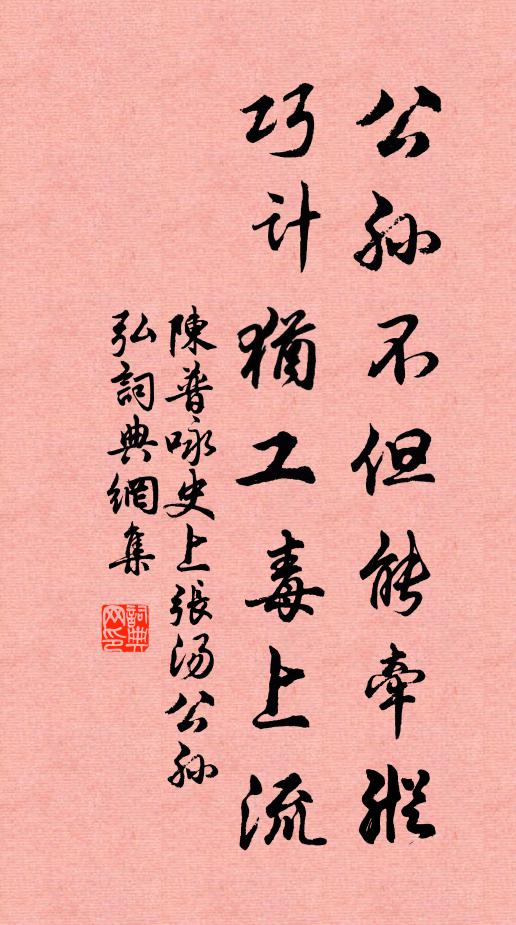 公孙不但能牵猔
巧计犹工毒上流
陳普咏史上張汤公孙
弘詞典網集
詞典網印